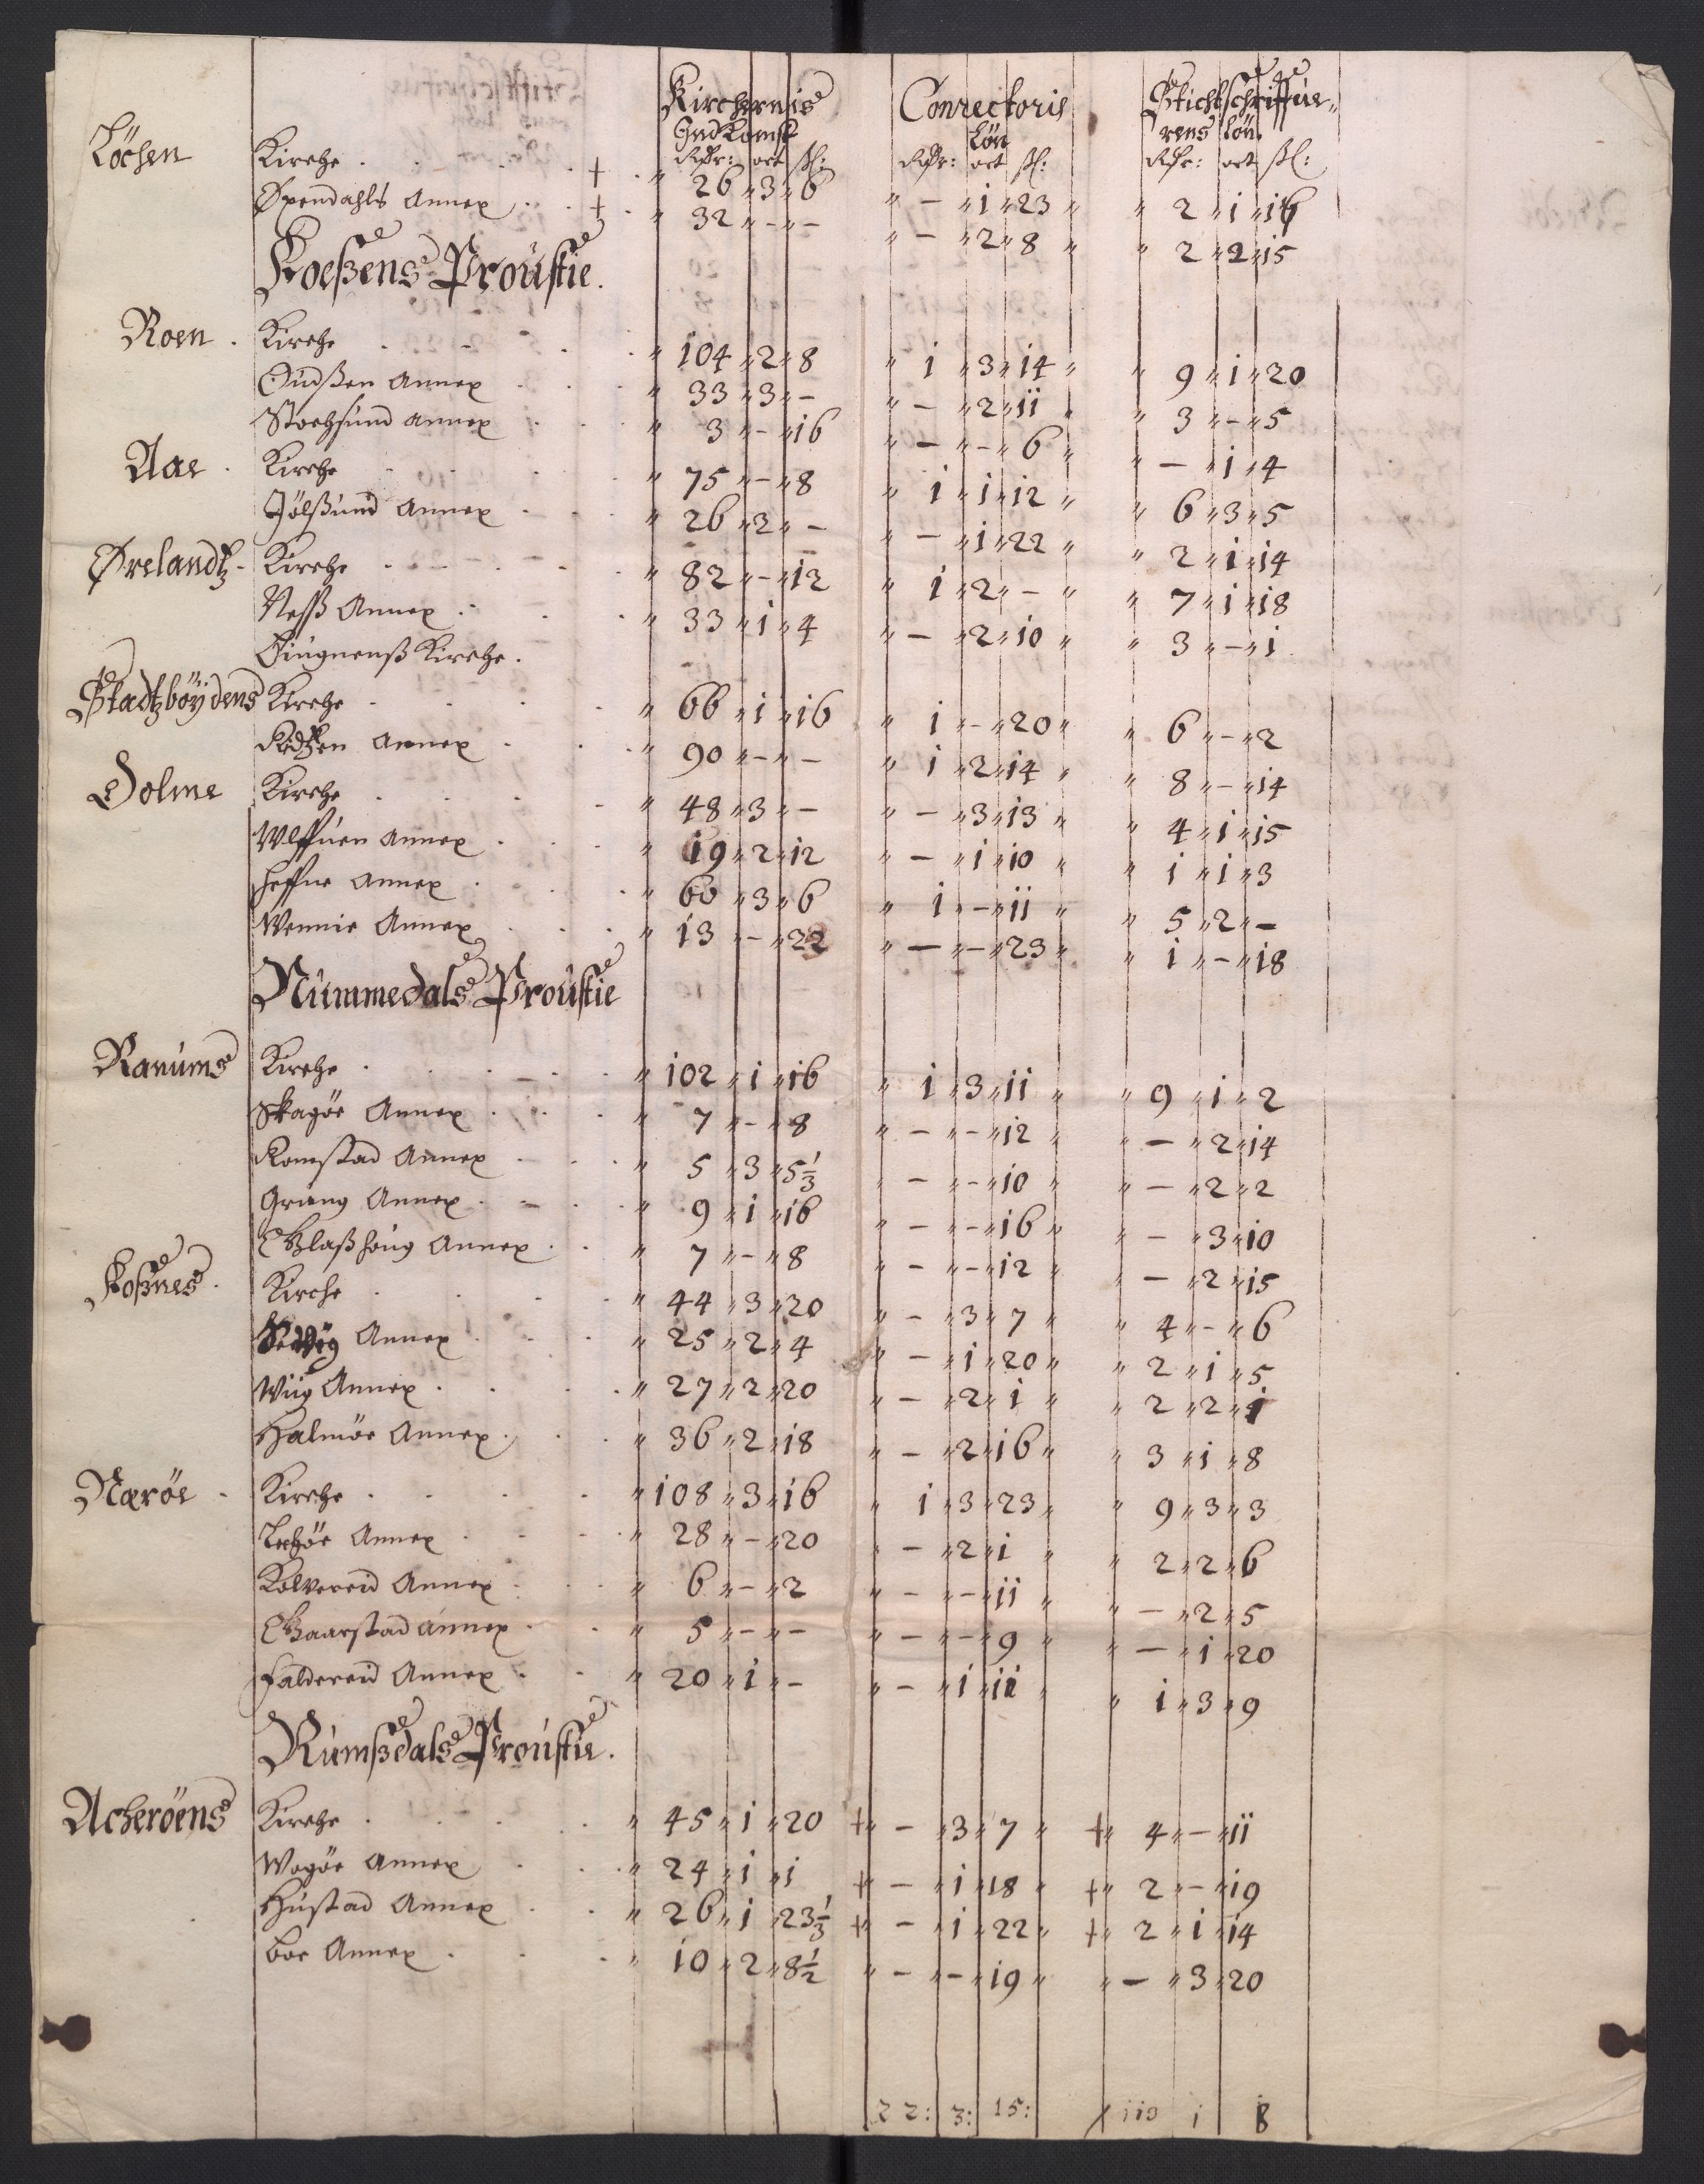 Kirchernis Conrectoris Stichtschriffue-
Indkomst Løn rens løn
Rdr: ort ßl: Rdr: ort ßl: Rdr: ort ßl:
Løchen Kirche . . . + " 26 " 3 " 6 " - " 1 " 23 " " 2 " 1 " 16
Øxendahls Annex . + . " 32 " - " - " - " 2 " 8 " " 2 " 2 " 15
Foeßens Proustie.
Roen . Kirche . . . " 104 " 2 " 8 " 1 " 3 " 14 " " 9 " 1 " 20
Oudßen Annex . . . " 33 " 3 " - " - " 2 " 11 " " 3 " - " 5
Stochsund annex . . . " 3 " - " 16 " - " - " 6 " " - " 1 " 4
Aae . Kirche . . . " 75 " - " 8 " 1 " 1 " 12 " " 6 " 3 " 5
Jølßund Annex . . . " 26 " 2 " - " - " 1 " 22 " " 2 " 1 " 14
Ørelandtz - Kirche . . . " 82 " - " 12 " 1 " 2 " - " " 7 " 1 " 18
Neß Annex . . . " 33 " 1 " 4 " - " 2 " 10 " " 3 " - " 1
Kirche .
Stadtzbøÿdens Kirche . . . " 66 " 1 " 16 " 1 " - " 20 " " 6 " - " 2
Annex . . . " 90 " - " - " 1 " 2 " 14 " " 8 " - " 14
Dolme Kirche . . . " 48 " 3 " - " - " 3 " 13 " " 4 " 1 " 15
Ulffuen Annex . . . " 19 " 2 " 12 " - " 1 " 10 " " 1 " 1 " 3
Heffne Annex . . . " 60 " 3 " 6 " 1 " - " 11 " " 5 " 2 " -
Wennie Annex . . . " 13 " - " 22 " - " - " 23 " " 1 " - " 18
Nummedals Proustie
Ranums Kirche . . . " 102 " 1 " 16 " 1 " 3 " 11 " " 9 " 1 " 2
Skagøe Annex . . . " 7 " - " 8 " - " - " 12 " " - " 2 " 14
Komstad Annex . . . " 5 " 3 " 5⅓ " - " - " 10 " " - " 2 " 2
Grung Annex . . . " 9 " 1 " 16 " - " - " 16 " " - " 3 " 10
Glaßhoug Annex . . " 7 " - " 8 " - " - " 12 " " - " 2 " 15
Foßnes . Kirche . . . " 44 " 3 " 20 " - " 3 " 7 " " 4 " - " 6
Annex . . . " 25 " 2 " 4 " - " 1 " 20 " " 2 " 1 " 5
Wiig Annex . . . " 27 " 2 " 20 " - " 2 " 1 " " 2 " 2 " 1
Halmøe Annex . . . " 36 " 2 " 18 " - " 2 " 16 " " 3 " 1 " 8
Nærøe - Kirche . . . " 108 " 3 " 16 " 1 " 3 " 23 " " 9 " 3 " 3
Annex . . . " 28 " - " 20 " - " 2 " 1 " " 2 " 2 " 6
Kolvereid Annex . . . " 6 " - " 2 " - " - " 11 " " - " 2 " 5
Gaarstad Annex . . " 5 " - " - " - " - " 9 " " - " 1 " 20
Foldereid Annex . . " 20 " 1 " - " - " 1 " 11 " " 1 " 3 " 9
Rumßdals Proustie.
Acherøens Kirche . . . " 45 " 1 " 20 + " - " 3 " 7 " + " 4 " - " 11
Wogøe Annex . . . " 24 " 1 " 1 + " - " 1 " 18 " + " 2 " - " 19
Hustad Annex . . " 26 " 1 " 23⅓ + " - " 1 " 22 " + " 2 " 1 " 14
boe Annex . . . " 10 " 2 " 8½ " - " - " 19 " " - " 3 " 20
22: 3: 15: